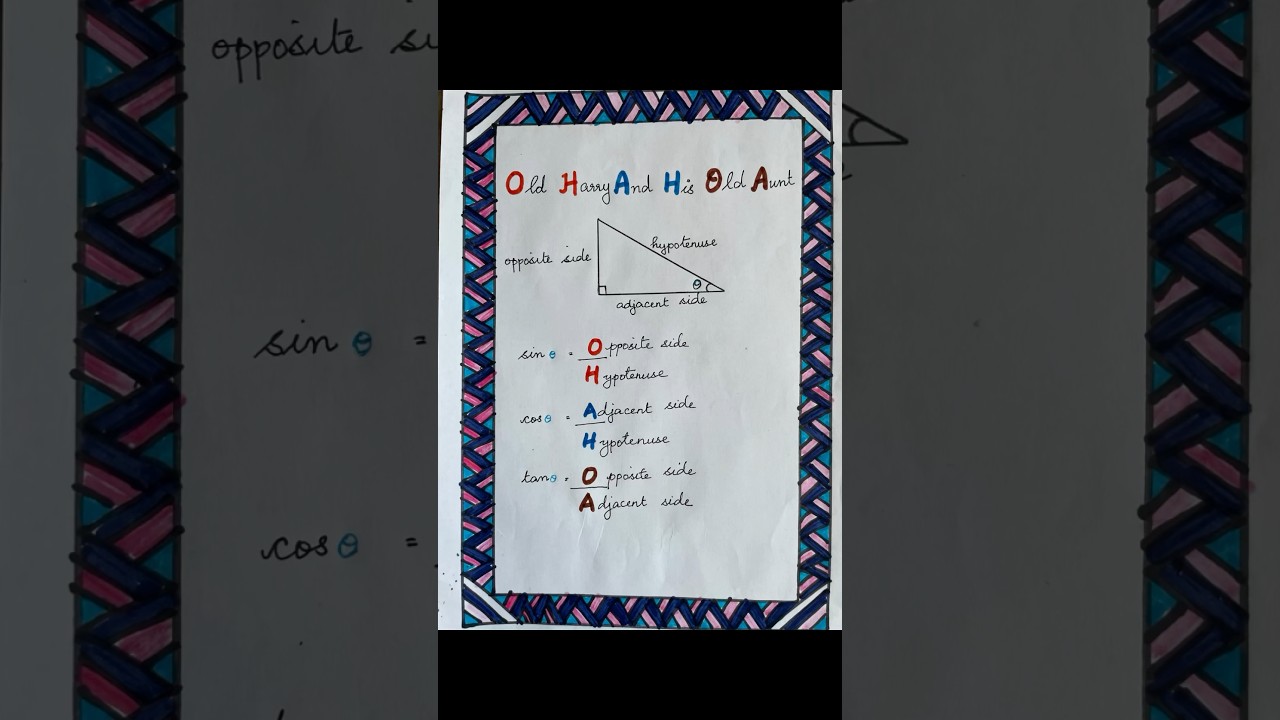 Old Harry And His Old Aunt
opposite side
hypotenuse
θ
adjacent side
sin θ = Opposite side
Hypotenuse
cos θ = Adjacent side
Hypotenuse
tan θ = Opposite side
Adjacent side
opposite si
sin θ =
cos θ =